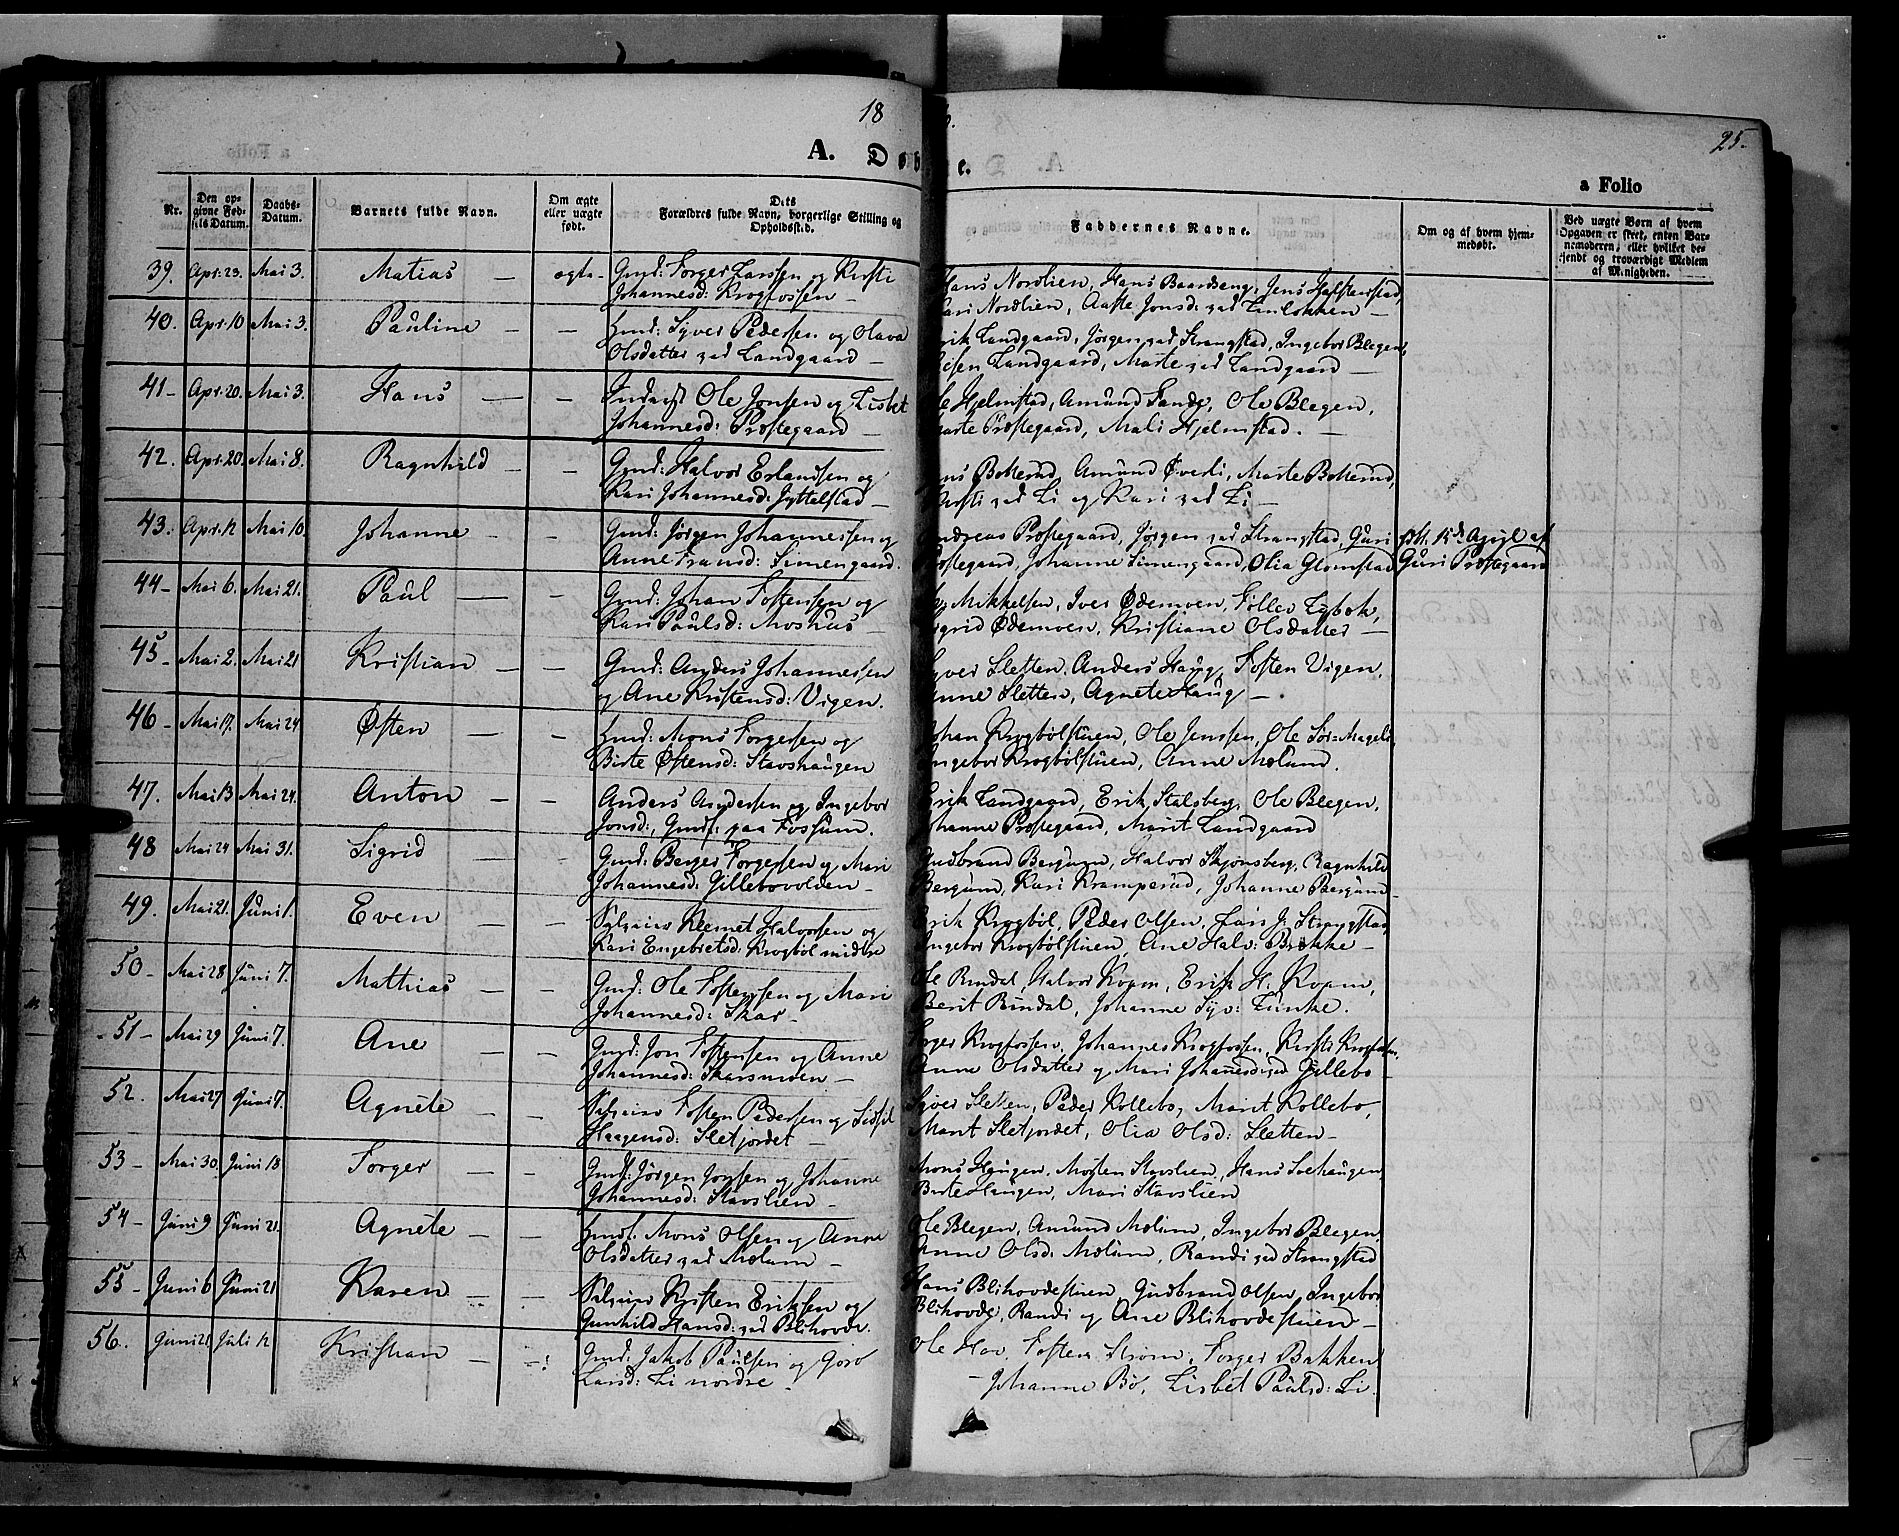 18
25.
A. Døb
e.
a Folio
Nr.
Den op-
givne Fød-
sels Datum.
Daabs-
Datum.
Barnets fulde Navn.
Om ægte
eller uægte
født.
Dets
Forældres fulde Navn, borgerlige Stilling og
Opholdssted.
Faddernes Navne.
Om og af hvem hjem-
medøbt.
Ved uægte Børn af hvem
Opgaven er skeet, enten Bar-
nemoderen, eller hvilket be-
kjendt og troværdigt Medlem
af Menigheden.
39. Apr. 23. Mai 3. Matias — ægte - Gmd: Torger Larssen og Kristi
Johannesd: Krogfossen —
Hans Nordlien, Hans Baardseng, Jens Hafstenstad,
Kari Nordlien, Aaste Jonsd:
40. Apr. 10 Mai 3. Pauline — — Syver Pedersen og Olava
Olsdatter ved Landgaard —
Erik Landgaard, Jörgen ved Strangstad, Ingebor Blegen,
Landgaard, Marte ved Landgaard —
41 - Apr. 20. Mai 3. Hans — — Inderst Ole Jonsen og Lisbet
Johannesd: Prestegaard —
Ole Hjelmstad, Amund Sande, Ole Blegen,
Marte Prestegaard, Mali Hjelmstad. —
42. Apr. 20. Mai 8. Ragnhild — — Gmd: Halvor Erlandsen og
Kari Johannesd: Jyttelstad —
Amund Øverli, Marte
Kristi ved Li og Kari ved Li —
43. Apr. 12 Mai 10. Johanne — — Gmd: Jörgen Johannessen og
Anne Fransd: Simengaard.
Andreas Prestegaard, Jörgen ved Strangstad, Guri
Prestegaard, Johanne Simengaard, Olia Glomstad
April af
Guri Prestegaard
44 - Mai 6. Mai 21. Paul — — Gmd: Johan Tostensen og
Kari Paulsd: Moshus —
Mikkelsen, Iver Ødemoen,
Sigrid Ødemoen, Kristiane Olsdatter —
45 - Mai 2. Mai 21 Kristian — — Gmd: Anders Johannessen
og Ane Kristensd: Vigen.
Syver Sletten, Anders Haug, Tosten Vigen,
Anne Sletten, Agnete Haug —.
46 - Mai 17. Mai 24 Østen — — Mons Torgersen og
Birte Østensd: Stavshaugen
Johan Krogbölstuen, Ole Jenssen, Ole Sör-Mageli,
Ingebor Krogbölstuen, Anne Mælum.
47. Mai 13 Mai 24. Anton — — Anders Andersen og Ingebor
Jonsd:, Gmdf. paa Fossum.
Erik Landgaard, Erik Stalsberg, Ole Blegen,
Johanne Prestegaard, Marit Landgaard
48 Mai 24 Mai 31. Sigrid — — Gmd: Berger Torgersen og Mari
Johannesd: Gillebovolden —
Gudbrand Bergum, Halvor Skjönsberg, Ragnhild
Bergum, Kari Kramperud, Johanne Bergum
49. Mai 21. Juni 1. Even — — Selveier Klemet Halvorsen og
Kari Engebretsd: Krogböl midtre
Erik Krogböl, Peder Olsen, Lars J: Strangstad
Ingebor Krogbölstuen, Ane Halv: Brække —
50 - Mai 28 Juni 7. Mathias — — Gmd: Ole Tostensen og Mari
Johannesd: Skar —
Ole Rindal, Halvor Kvam, Erik H. Kvam,
Berit Rindal, Johanne Syv:
- 51 - Mai 29 Juni 7. Ane — — Gmd: Jon Tostensen og Anne
Johannesd: Skarsmoen —
Torger Krogfossen, Johannes Krogfossen, Kristi Krogfossen,
Anne Olsdatter og Mari Johannesd: ved Gillebo
52. Mai 27 Juni 7. Agnete — — Selveier Tosten Pedersen og Sidsel
Haagensd: Sletjordet —
Syver Sletten, Peder Kollebo, Marit Kollebo,
Marit Sletjordet, Olia Olsd: Sletten —
53 - Mai 30. Juni 18 Torger — — Gmdf: Jörgen Jonsen og Johanne
Johannesd: Stavslien —
Mons Haugen, Morten Stavslien, Hans
Birte Haugen, Mari Stavslien
54 - Juni 9 Juni 21. Agnete — — Mons Olsen og Anne
Olsdatter ved Mælum —
Ole Blegen, Amund Mælum, Ingebor Blegen,
Anne Olsd: Mælum, Randi ved Strangstad
55 - Juni 6 Juni 21 Karen — — Selveier Kristen Eriksen og
Gunhild Hansd: ved Blihovde.
Hans Blihovdestuen, Gudbrand Olsen, Ingebor
Blihovde, Randi og Ane Blihovdestuen —
56. Juni 21 Juli 12 Kristian — — Gmd: Jakob Paulsen og Goro
Larsd: Li nordre —
Ole Hov, Tosten Ström, Torger Bakken
— Johanne Bö, Lisbet Paulsd: Li.